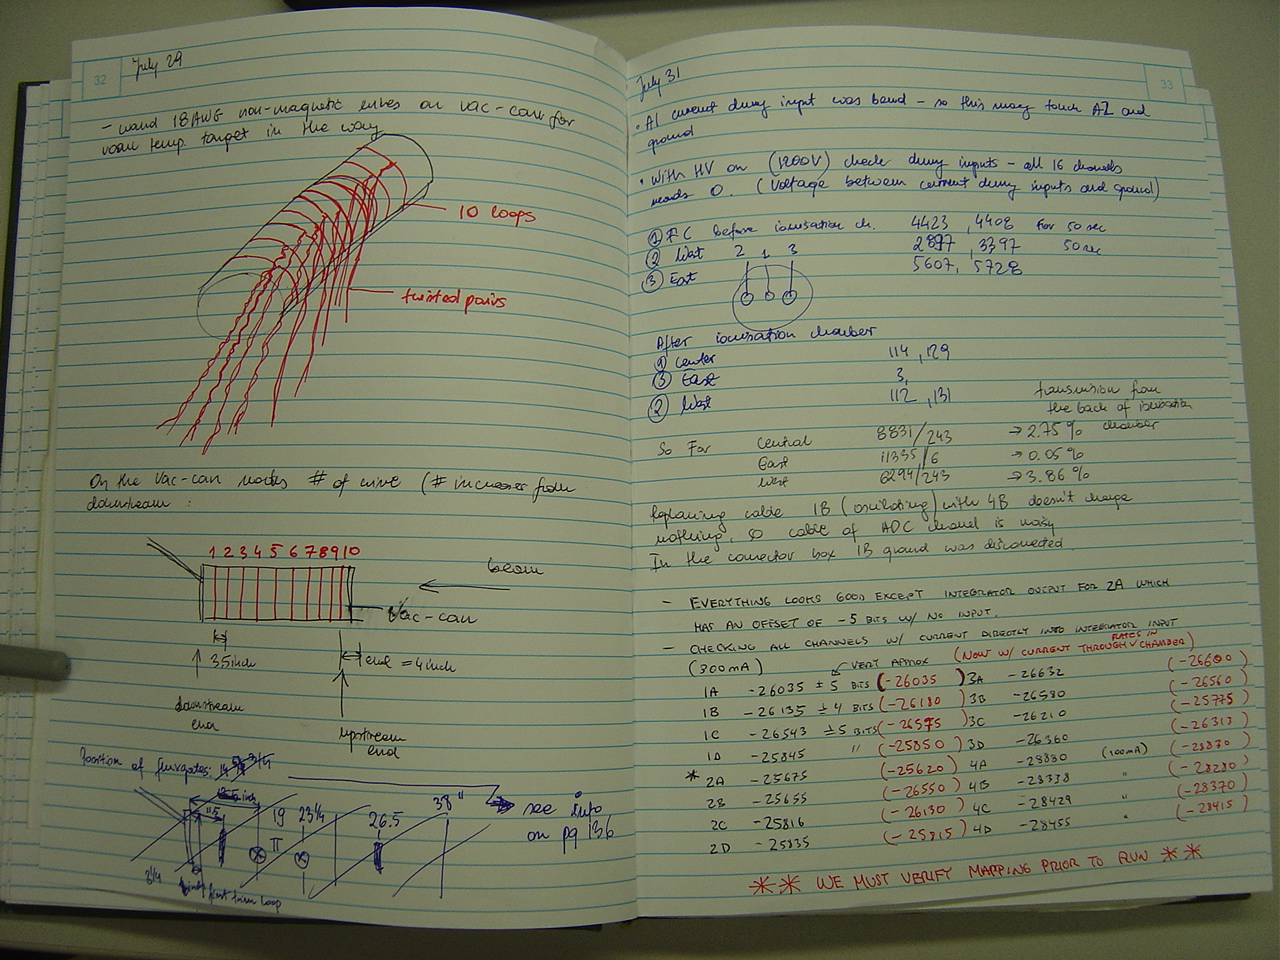 32
July 29
- wound 18AWG non-magnetic wires on vac-can for
room temp. target in the way
10 loops
twisted pairs
On the Vac-can marks # of wire (# increases from
downstream :
1 2 3 4 5 6 7 8 9 10
beam
Vac-can
3.5 inch
end = 4 inch
downstream
end
upstream
end
Position of fluxgates:
19 23 1/4
26.5
38"
π
2 1/4
first trim loop
see info
on pg 136
33
July 31
• A1 current dummy input was bend - so this may touch A2 and
ground
• With HV on (1200V) check dummy inputs - all 16 channels
reads 0. (Voltage between current dummy inputs and ground)
① FC before ionisation ch. 4423 , 4408 for 50 sec
② West 2 1 3 2897 , 3397 50 sec
③ East 5607, 5728
After ionisation chamber
① Center 114 , 129
③ East 3,
② West 112 , 131
transmission from
the back of ionisation
chamber
So Far Central 8831/243 → 2.75 %
East 11335/6 → 0.05 %
West 6294/243 → 3.86 %
Replacing cable 1B (oscillating) with 4B doesn't change
nothing, so cable of ADC channel is noisy
In the connector box 1B ground was disconnected.
- EVERYTHING LOOKS GOOD EXCEPT INTEGRATOR OUTPUT FOR 2A WHICH
HAS AN OFFSET OF -5 BITS W/ NO INPUT.
- CHECKING ALL CHANNELS W/ CURRENT DIRECTLY INTO INTEGRATOR INPUT
(300mA) VERY APROX (NOW W/ CURRENT THROUGH CHAMBER)
1A -26035 ± 5 BITS (-26035) 3A -26632 (-26600)
1B -26135 ± 4 BITS (-26180) 3B -26580 (-26560)
1C -26543 ± 5 BITS (-26575) 3C -26210 (-25775)
1D -25845 " (-25850) 3D -26360 (-26313)
* 2A -25675 (-25620) 4A -28880 (100mA) (-28870)
2B -25655 (-26550) 4B -28338 " (-28280)
2C -25816 (-26130) 4C -28429 " (-28370)
2D -25835 (-25815) 4D -28455 " (-28415)
** WE MUST VERIFY MAPPING PRIOR TO RUN **